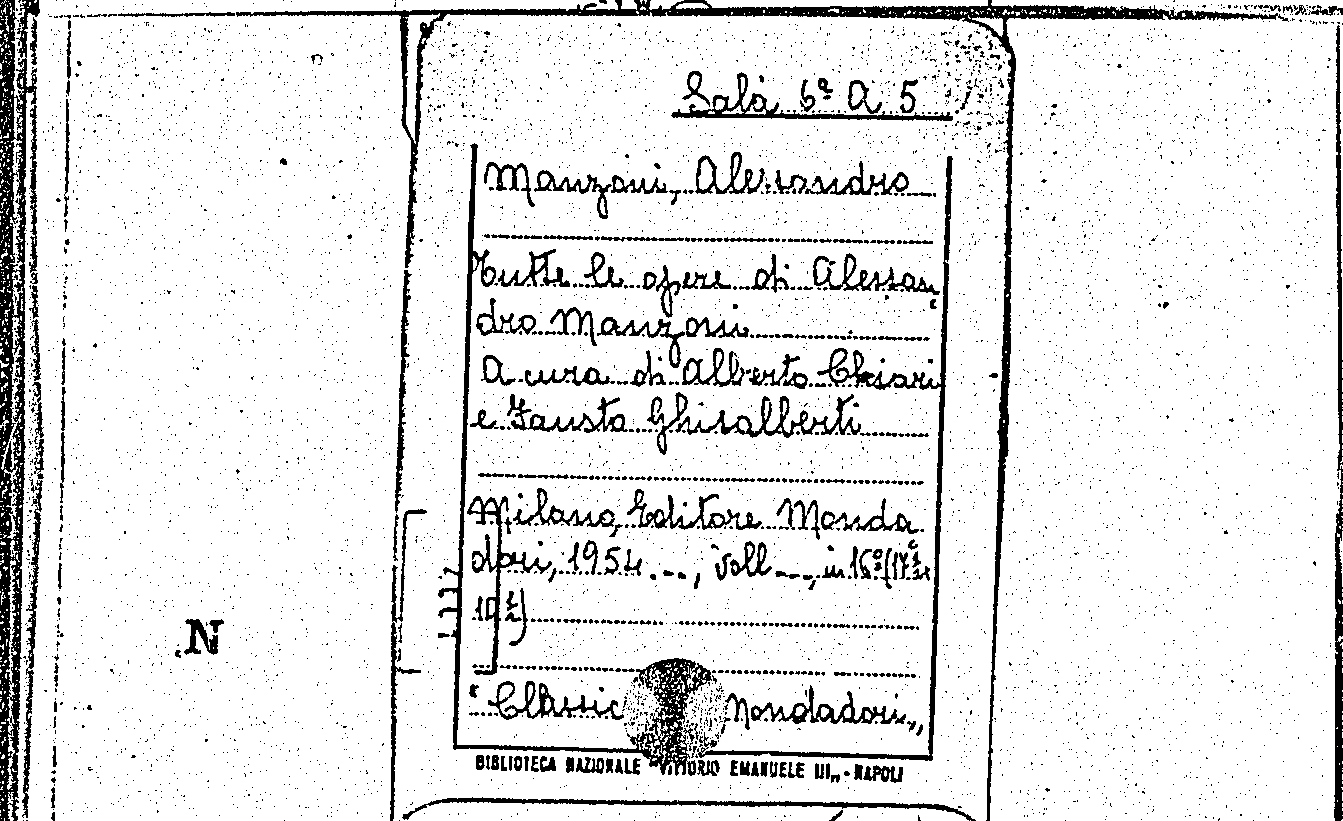 Sala 6ª A 5
Manzoni, Alessandro
Tutte le opere di Alessan
dro Manzoni
A cura di Alberto Chiari
e Fausto Ghisalberti
Milano, Editore Monda
dori, 1954 ..., voll ..., in 16º (17½
N
"Classic Mondadori„
BIBLIOTECA NAZIONALE "VITTORIO EMANUELE III„ - NAPOLI